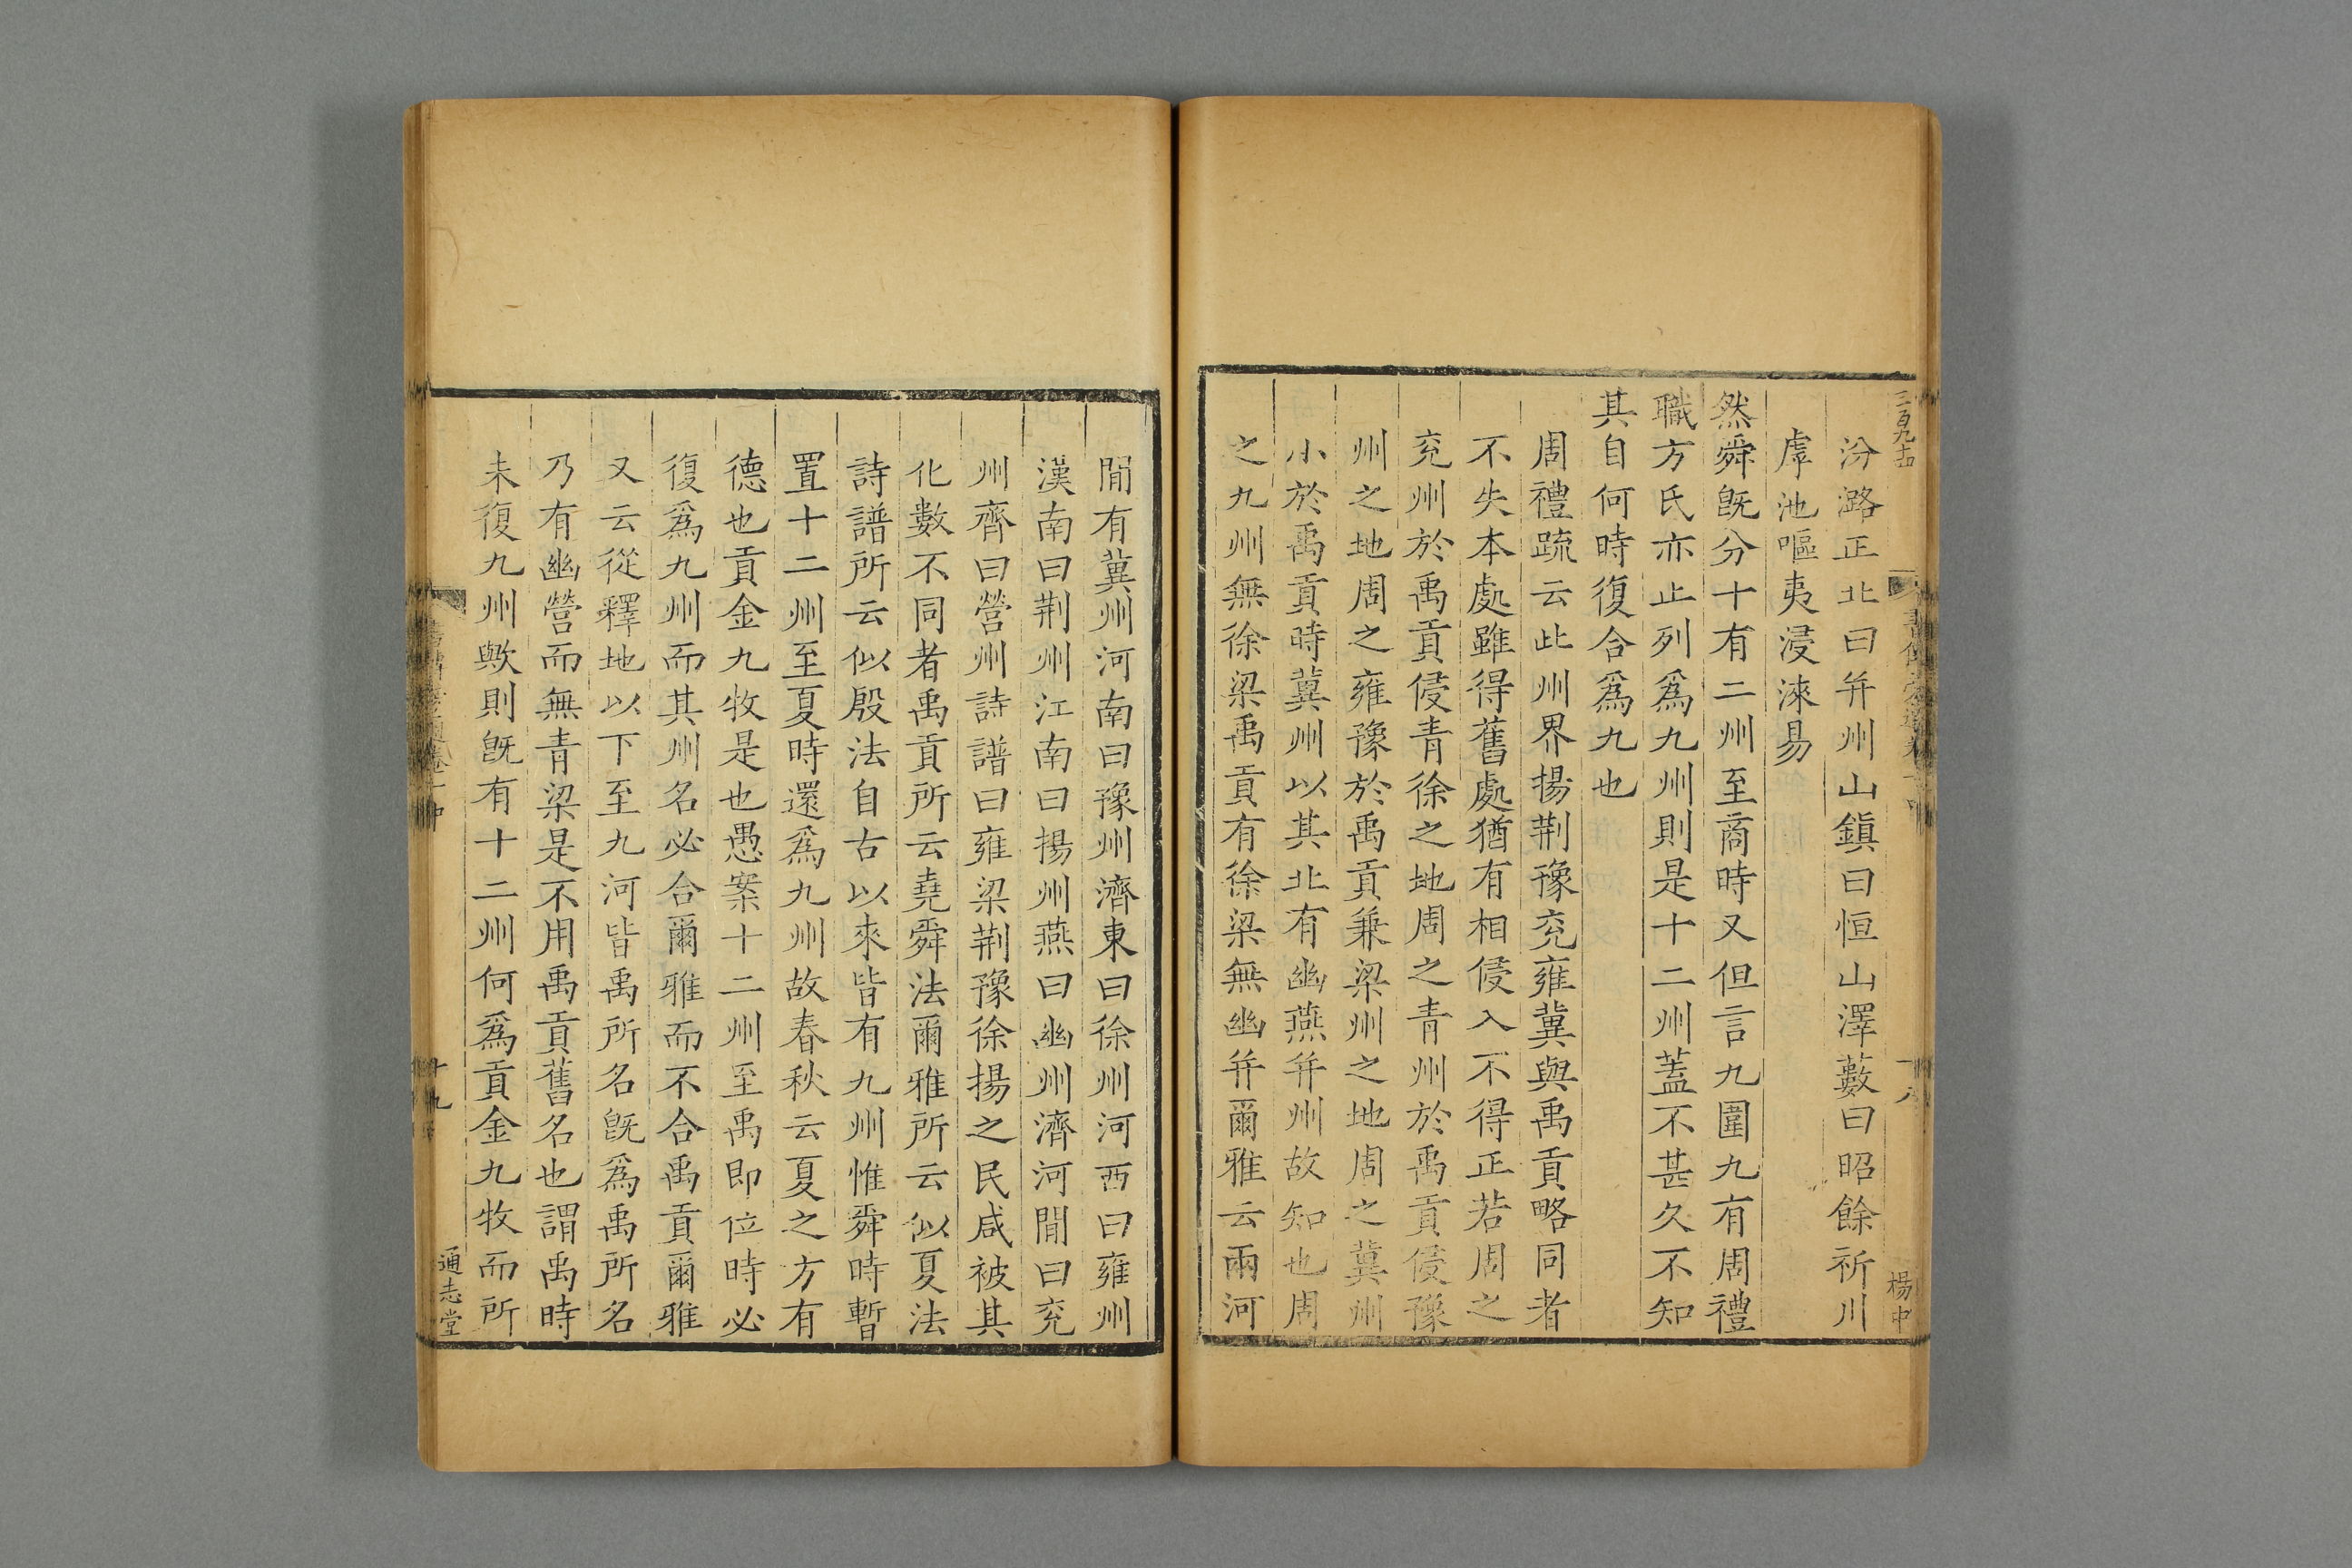 三百九十四
汾潞正北曰并州山鎮曰恒山澤藪曰昭餘祈川
虖池嘔夷浸淶易
然舜旣分十有二州至商時又但言九圍九有周禮
職方氏亦止列爲九州則是十二州蓋不甚久不知
其自何時復合爲九也
周禮疏云此州界揚荆豫兖雍冀與禹貢略同者
不失本處雖得舊處猶有相侵入不得正若周之
兖州於禹貢侵青徐之地周之青州於禹貢侵豫
州之地周之雍豫於禹貢兼梁州之地周之冀州
小於禹貢時冀州以其北有幽燕并州故知也周
之九州無徐梁禹貢有徐梁無幽并爾雅云兩河
十八
楊中
閒有冀州河南曰豫州濟東曰徐州河西曰雍州
漢南曰荆州江南曰揚州燕曰幽州濟河閒曰兖
州齊曰營州詩譜曰雍梁荆豫徐揚之民咸被其
化數不同者禹貢所云堯舜法爾雅所云似夏法
詩譜所云似殷法自古以來皆有九州惟舜時暫
置十二州至夏時還爲九州故春秋云夏之方有
德也貢金九牧是也愚案十二州至禹即位時必
復爲九州而其州名必合爾雅而不合禹貢爾雅
又云從釋地以下至九河皆禹所名旣爲禹所名
乃有幽營而無青梁是不用禹貢舊名也謂禹時
未復九州歟則旣有十二州何爲貢金九牧而所
十九
通志堂